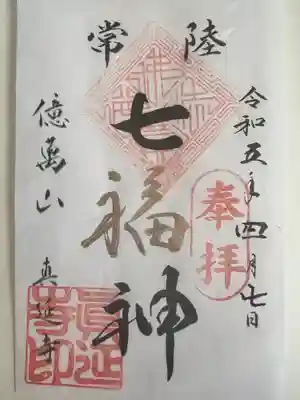 常陸
七福神
令和五年四月七日
奉拝
億萬山
真延寺
眞延寺印